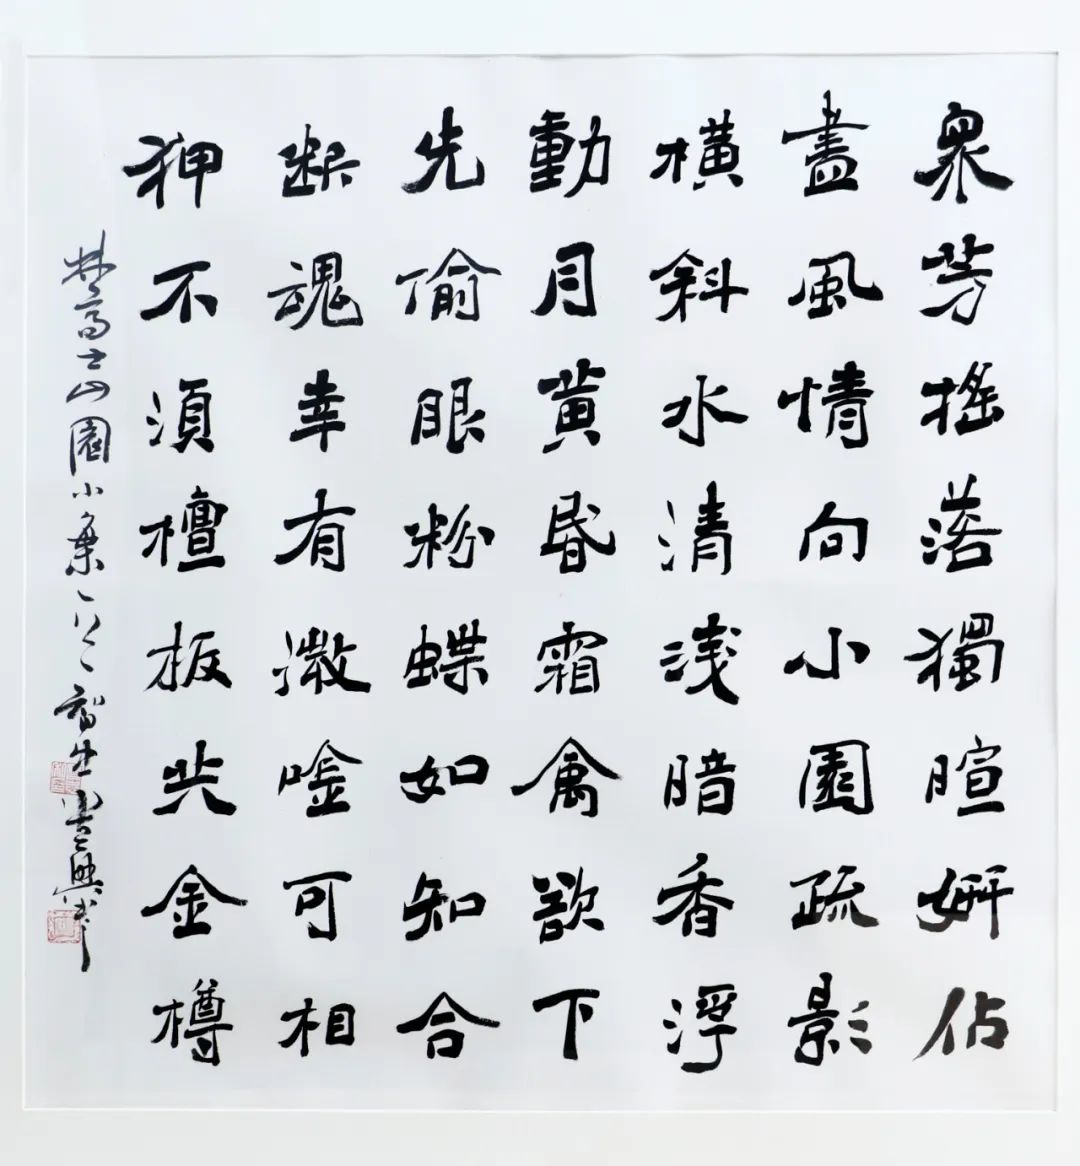 眾芳搖落獨暄妍佔
盡風情向小園疏影
橫斜水清淺暗香浮
動月黃昏霜禽欲下
先偷眼粉蝶如知合
斷魂幸有微唫可相
狎不須檀板共金樽
林高士山園小